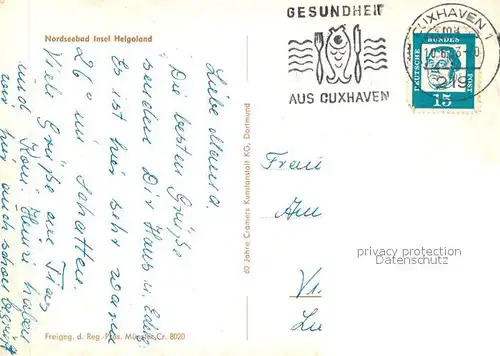 Nordseebad Insel Helgoland
GESUNDHEIT
AUS CUXHAVEN
CUXHAVEN 1
DEUTSCHE BUNDES POST
15
Liebe Mama.
Die besten Grüße
senden Dir Hans u.
Es ist hier sehr warm
26° im Schatten.
Viele Grüße an Tina
und haben
wir hier auch schon
60 Jahre Cramers Kunstanstalt KG, Dortmund
Freigeg. d. Reg.-Präs. Münster Cr. 8020
Frau
Am
privacy protection
Datenschutz